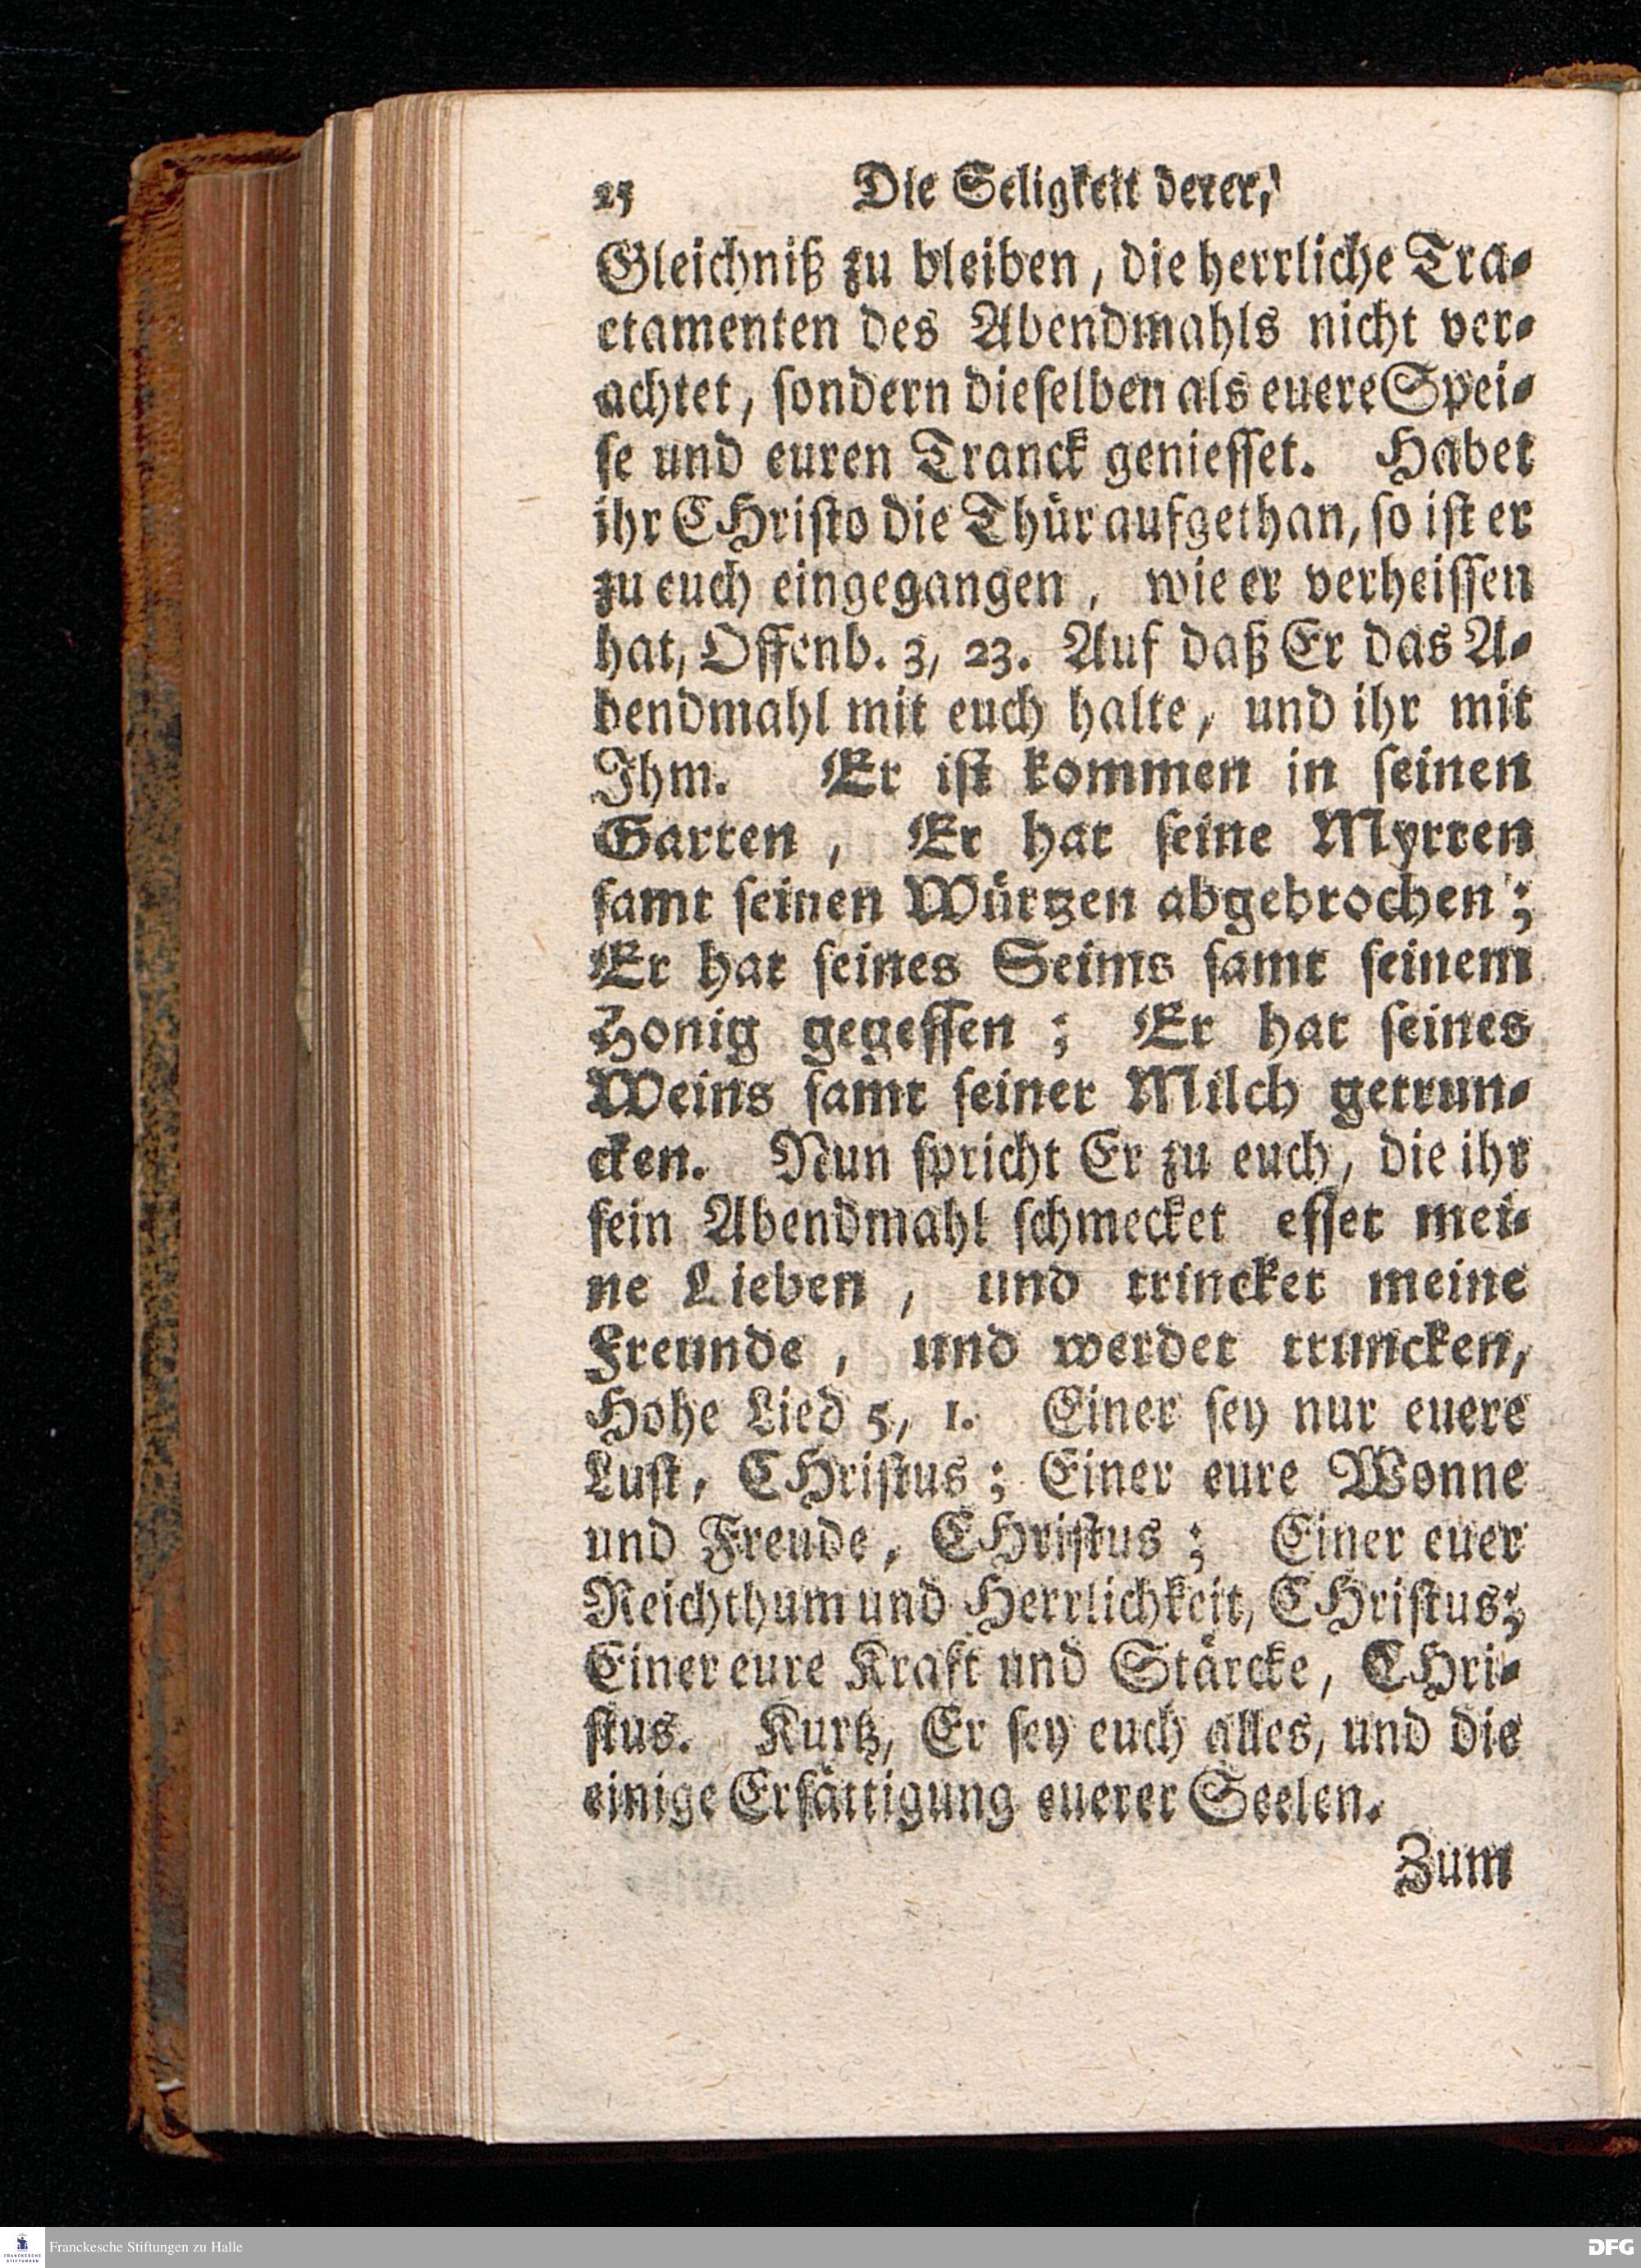 25 Die Seligkeit derer,
Gleichniß zu bleiben, die herrliche Tra⸗
ctamenten des Abendmahls nicht ver⸗
achtet, ſondern dieſelben als euere Spei⸗
ſe und euren Tranck genieſſet. Habet
ihr CHriſto die Thür aufgethan, ſo iſt er
zu euch eingegangen, wie er verheiſſen
hat, Offenb. 3, 23. Auf daß Er das A⸗
bendmahl mit euch halte, und ihr mit
Ihm. Er iſt kommen in ſeinen
Garten, Er hat ſeine Myrren
ſamt ſeinen Würtzen abgebrochen;
Er hat ſeines Seims ſamt ſeinem
Honig gegeſſen; Er hat ſeines
Weins ſamt ſeiner Milch getrun⸗
cken. Nun ſpricht Er zu euch, die ihr
ſein Abendmahl ſchmecket eſſet mei⸗
ne Lieben, und trincket meine
Freunde, und werdet truncken,
Hohe Lied 5, 1. Einer ſey nur euere
Luſt, CHriſtus; Einer eure Wonne
und Freude, CHriſtus; Einer euer
Reichthum und Herrlichkeit, CHriſtus;
Einer eure Kraft und Stärcke, CHri⸗
ſtus. Kurtz, Er ſey euch alles, und die
einige Erſättigung euerer Seelen.
Zum
FRANCKESCHE STIFTUNGEN
Franckesche Stiftungen zu Halle
DFG